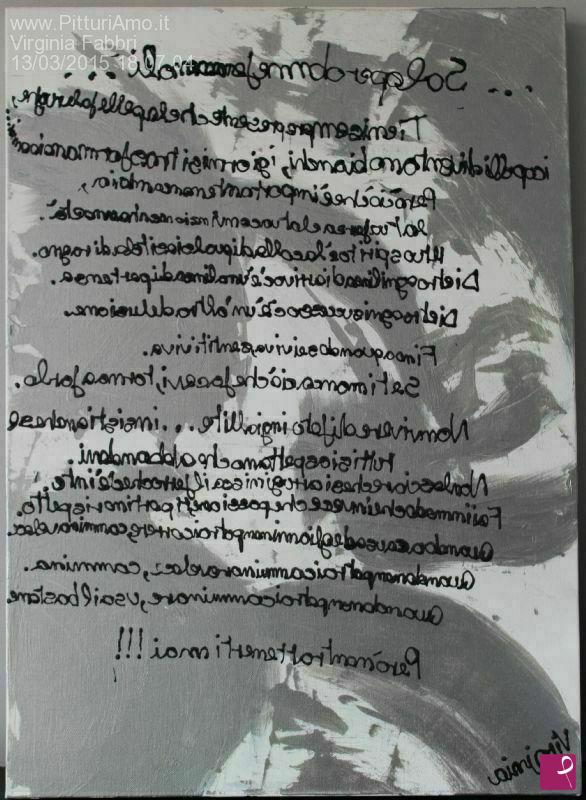 www.PitturiAmo.it
Virginia Fabbri
13/03/2015 18:07:04
... Solo per donne fenomenali ...
Tieni sempre presente che la pelle fa le rughe,
i capelli diventano bianchi, i giorni si trasformano in anni
Però ciò che è importante non cambia,
la tua forza e la tua convinzione non hanno età.
Il tuo spirito è la colla di qualsiasi tela di ragno.
Dietro ogni linea di arrivo c'è una linea di partenza.
Dietro ogni successo c'è un'altra delusione.
Fino a quando sei viva, sentiti viva.
Se ti manca ciò che facevi, torna a farlo.
Non vivere di foto ingiallite... insisti anche se
tutti si aspettano che abbandoni.
Non lasciare che si arrugginisca il ferro che c'è in te.
Fai in modo che invece che compassione ti portino rispetto.
Quando a causa degli anni non potrai correre, cammina veloce.
Quando non potrai camminare veloce, cammina.
Quando non potrai camminare, usa il bastone.
Però non trattenerti mai !!!
Virginia